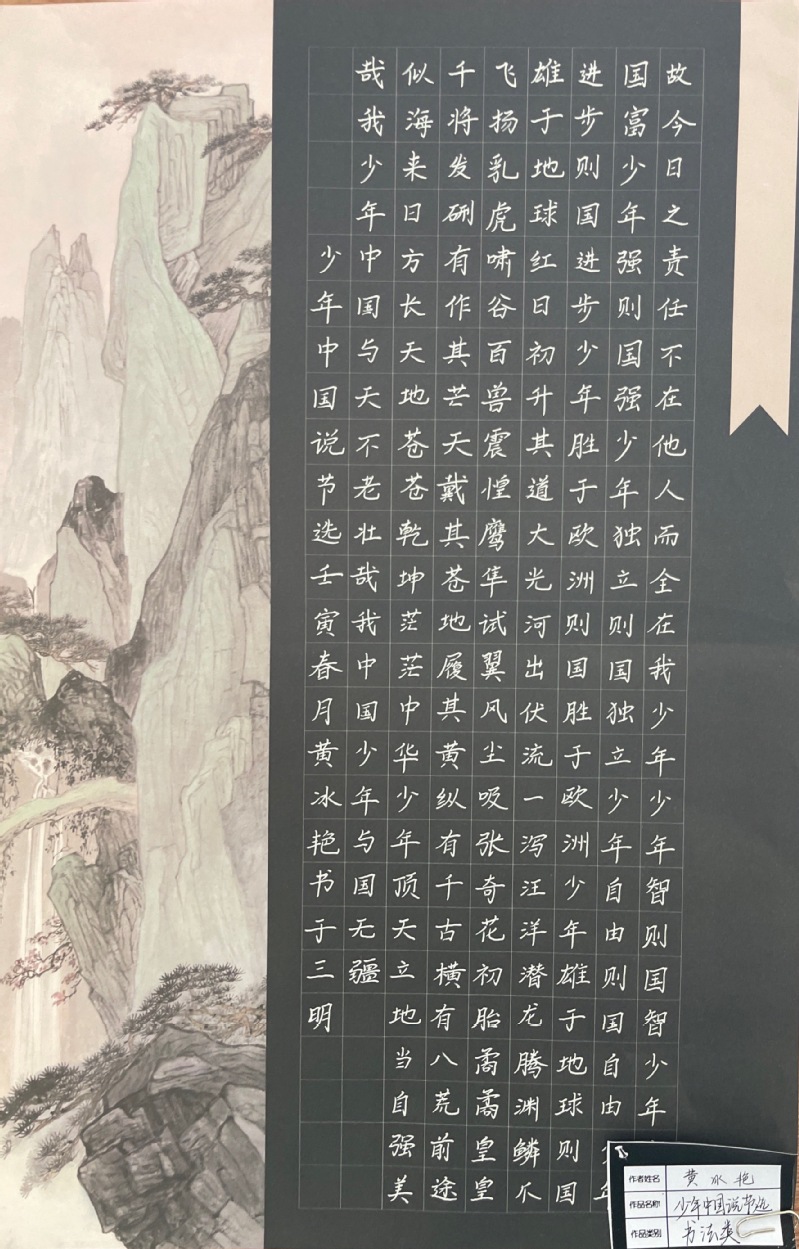 故今日之责任不在他人而全在我少年少年智则国智少年
国富少年强则国强少年独立则国独立少年自由则国自由
进步则国进步少年胜于欧洲则国胜于欧洲少年雄于地球则国
雄于地球红日初升其道大光河出伏流一泻汪洋潜龙腾渊鳞爪
飞扬乳虎啸谷百兽震惶鹰隼试翼风尘吸张奇花初胎矞矞皇皇
千将发硎有作其芒天戴其苍地履其黄纵有千古横有八荒前途
似海来日方长天地苍苍乾坤茫茫中华少年顶天立地当自强美
哉我少年中国与天不老壮哉我中国少年与国无疆
少年中国说节选壬寅春月黄冰艳书于三明
作者姓名 黄冰艳
作品名称 少年中国说节选
作品类别 书法类